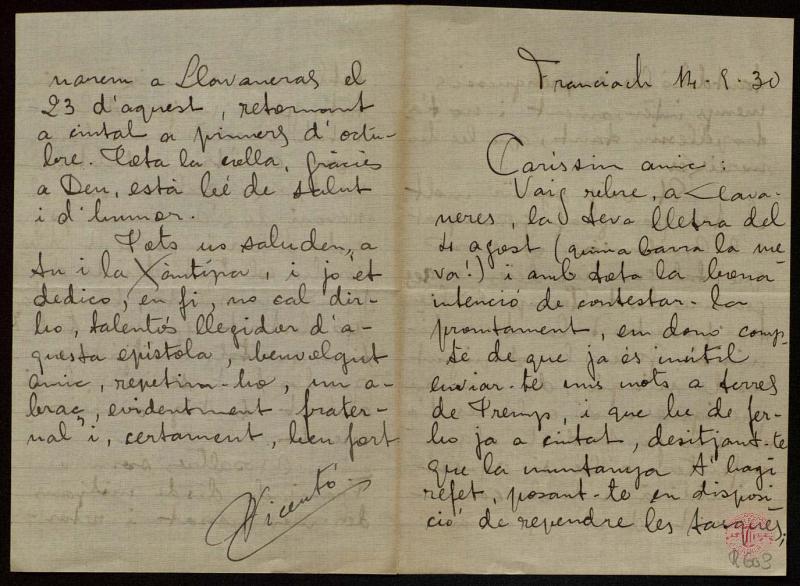 Franciach 14.9.30
Caríssim amic:
Vaig rebre, a Llava-
neres, la teva lletra del
4 agost (quina barra la me-
va!) i amb tota la bona
intenció de contestar-la
prontament, em dono comp-
te de que ja és inútil
enviar-te mis mots a terres
de Tremp, i que he de fer-
ho ja a ciutat, desitjant-te
que la muntanya t'hagi
refet, posant-te en disposi-
ció de rependre les tasques,
narem a Llavaneras el
23 d'aquest, retornant
a ciutat a primers d'octu-
bre. Tota la colla, gràcies
a Deu, està bé de salut
i d'humor.
Tots us saluden, a
tu i la Xantipa, i jo "et
dedico, en fi, no cal dir-
ho, talentós llegidor d'a-
questa epístola, benvolgut
amic, repetim-ho, un a-
braç, evidentment frater-
nal" i, certament, ben fort
Vicentó.
R.603